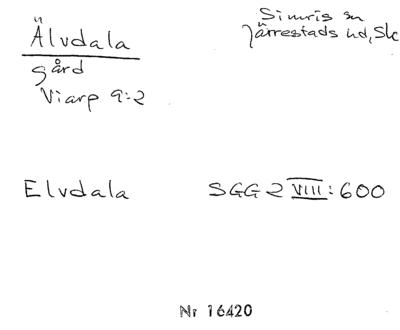 Älvdala
Simris sn
Järrestads hd, Sk
gård
Viarp 9:2
Elvdala SGG 2 VIII: 600
Nr 16420